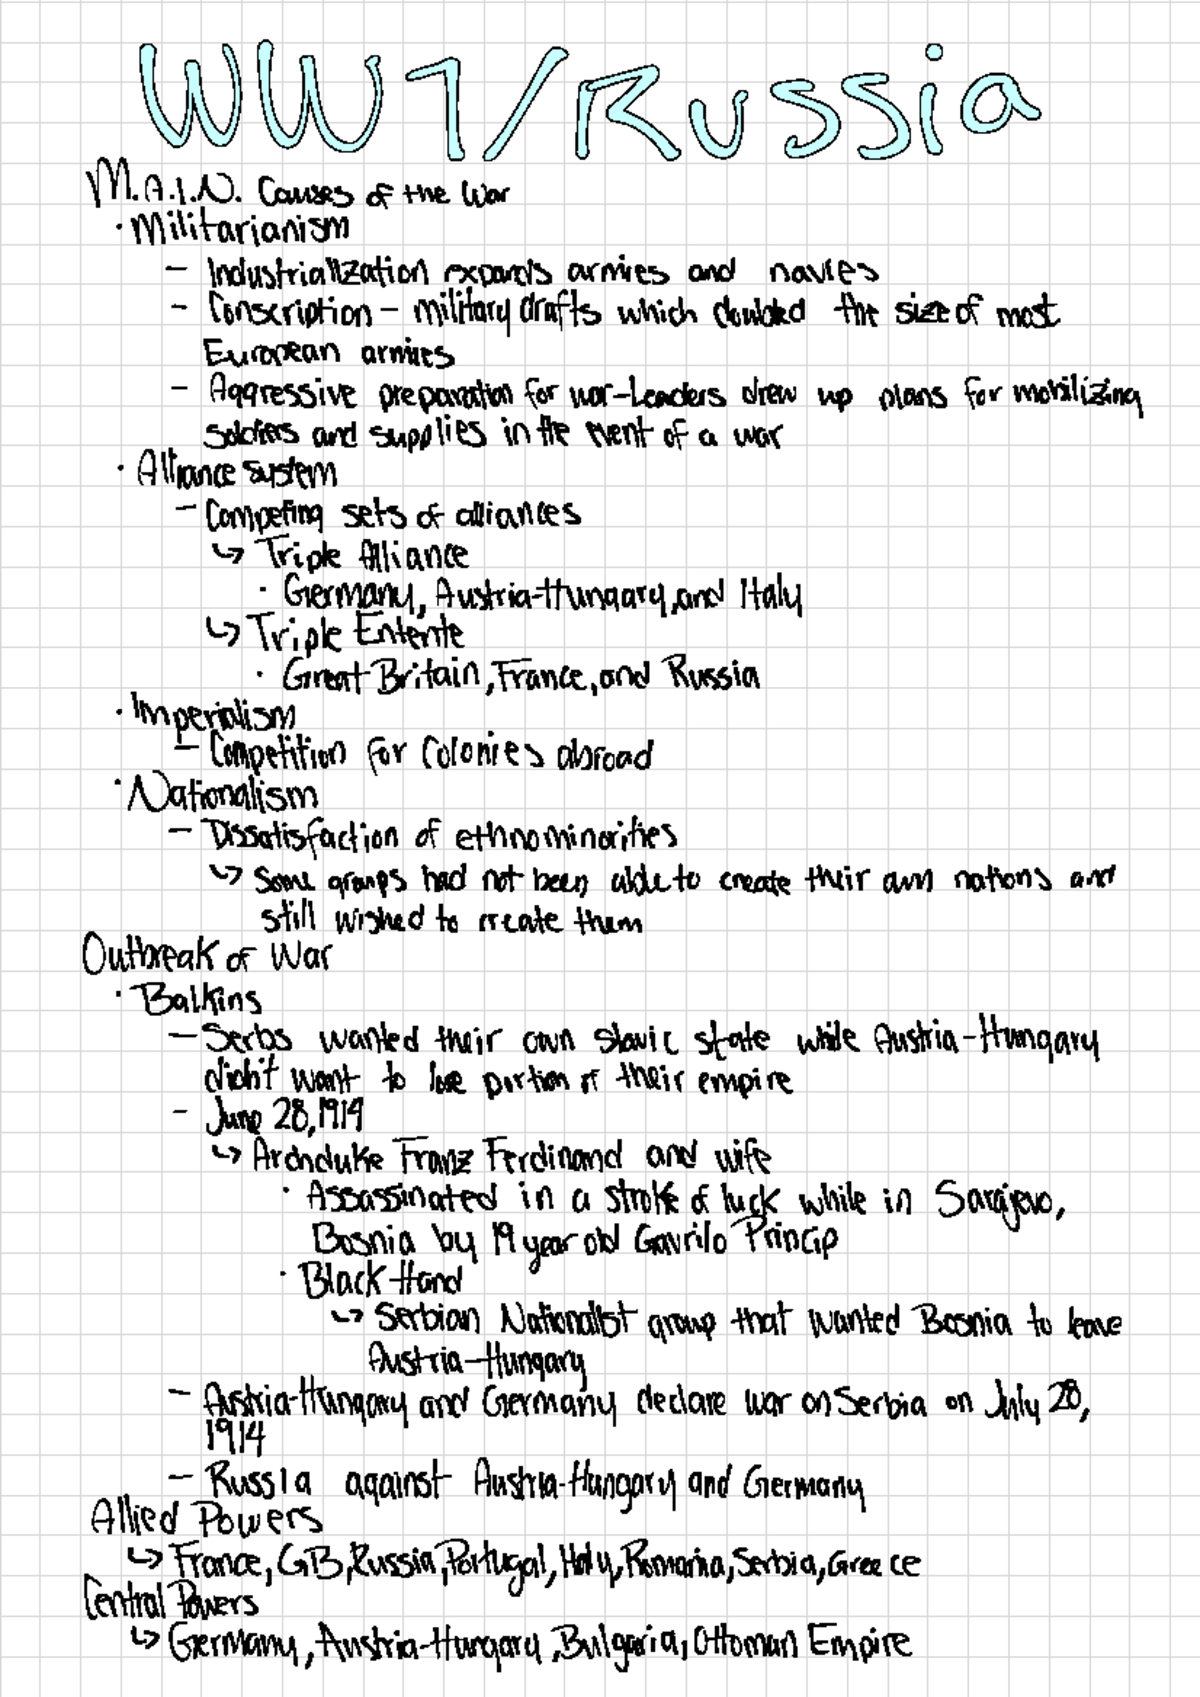 WW1/Russia
M.A.I.N. Causes of the War
· Militarianism
– Industrialization expands armies and navies
– Conscription – military drafts which doubled the size of most
European armies
– Aggressive preparation for war-Leaders drew up plans for mobilizing
soldiers and supplies in the event of a war
· Alliance system
– Competing sets of alliances
↳ Triple Alliance
· Germany, Austria-Hungary, and Italy
↳ Triple Entente
· Great Britain, France, and Russia
· Imperialism
– Competition for Colonies abroad
· Nationalism
– Dissatisfaction of ethnominorities
↳ Some groups had not been able to create their own nations and
still wished to create them
Outbreak of War
· Balkins
– Serbs wanted their own Slavic state while Austria-Hungary
didn't want to lose portion of their empire
– June 28, 1914
↳ Archduke Franz Ferdinand and wife
· Assassinated in a stroke of luck while in Sarajevo,
Bosnia by 19 year old Gavrilo Princip
· Black Hand
↳ Serbian Nationalist group that wanted Bosnia to leave
Austria-Hungary
– Austria-Hungary and Germany declare war on Serbia on July 28,
1914
– Russia against Austria-Hungary and Germany
Allied Powers
↳ France, GB, Russia, Portugal, Italy, Romania, Serbia, Greece
Central Powers
↳ Germany, Austria-Hungary, Bulgaria, Ottoman Empire